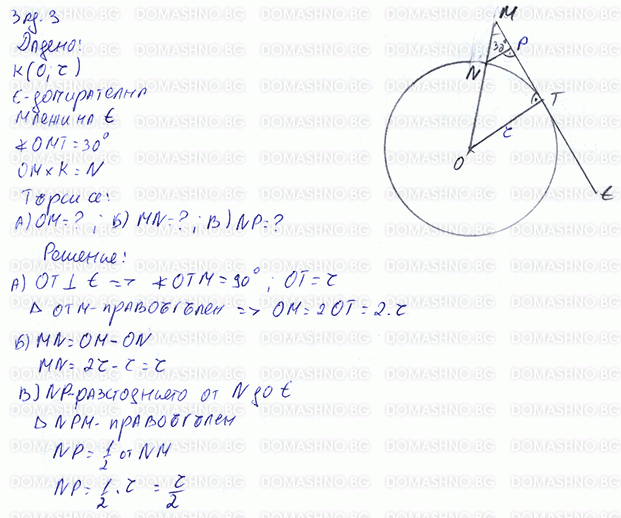 Зад. 3
Дадено:
k(O; r)
t-допирателна
M лежи на t
∢OMT = 30°
OM x K = N
Търси се:
А) OM = ? ; Б) MN = ? ; В) NP = ?
Решение:
А) OT ⊥ t => ∢OTM = 90° ; OT = r
Δ OTM-правоъгълен => OM = 2OT = 2.r
Б) MN = OM - ON
MN = 2r - r = r
В) NP-разстоянието от N до t
Δ NPM- правоъгълен
NP = 1/2 от NM
NP = 1/2 . r = r/2
M
30°
P
N
T
r
O
t
DOMASHNO.BG